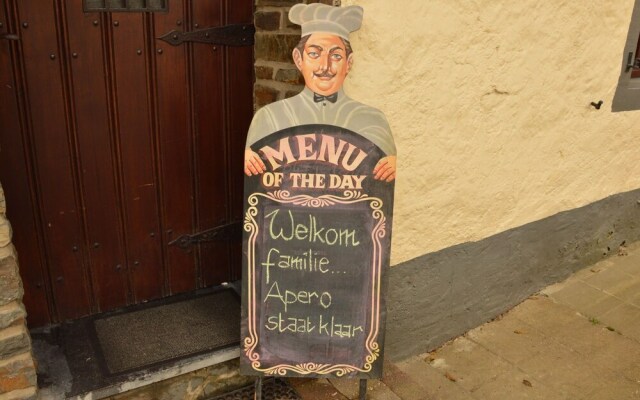 MENU
OF THE DAY
Welkom
familie...
Apero
staat klaar